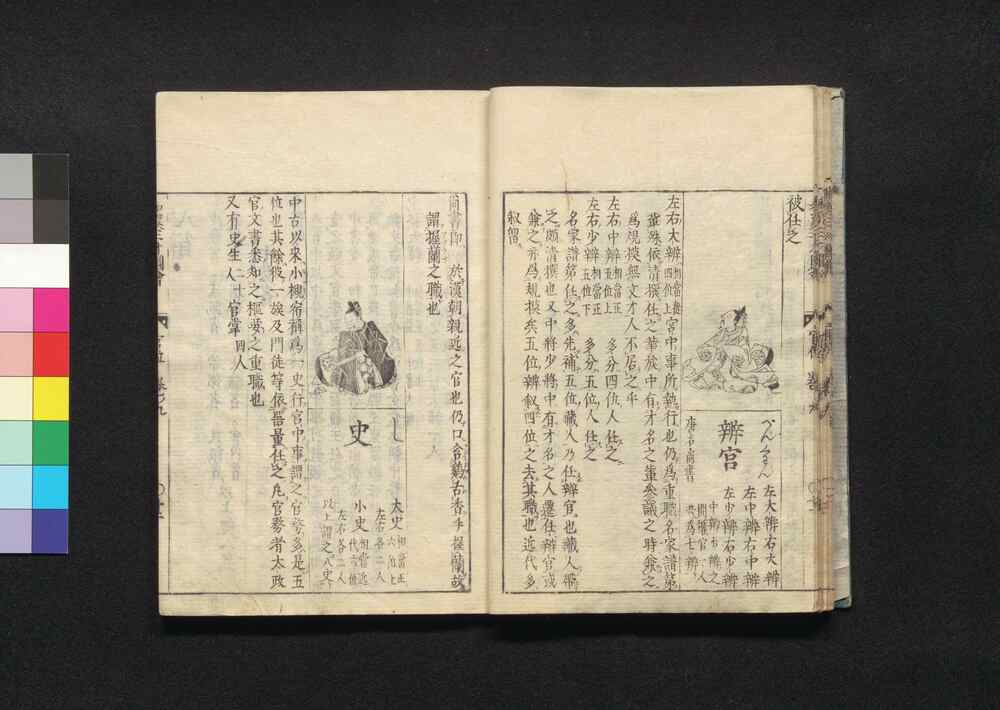 彼任之
べんくわん
辨官
唐名尚書
左大辨右大辨
左中辨右中辨
左少辨右少辨
中辨右辨之
間權官一人
共爲七辨
左右大辨相當從四位上宮中事所執行也仍爲重職名家譜第
輩殊依清撰任之華族中有才名之輩參議之時兼之
爲規摸無文才人不居之乎
左右中辨相當正五位上　多分四位人任之
左右少辨相當正五位下　多分五位人任之
名家譜第任之多先補五位藏人乃任辨官也藏人帶
之頗清撰也又中將少將中有才名之人遷任辨官或
兼之亦爲規摸矣五位辨叙四位之去其職也近代多
叙留
尚書郎　於漢朝親近之官也仍口含鷄舌香手握蘭故
謂握蘭之職也
し
史
大史相當正六位上
左右各二人
小史相當近代六位
左右各二人
以上謂之八史
中古以來小槻宿禰爲一史行官中事謂之官務多是五
位也其餘彼一族及門徒等依器量任之凡官務者太政
官文書悉知之樞要之重職也
又有史生二十人官掌四人